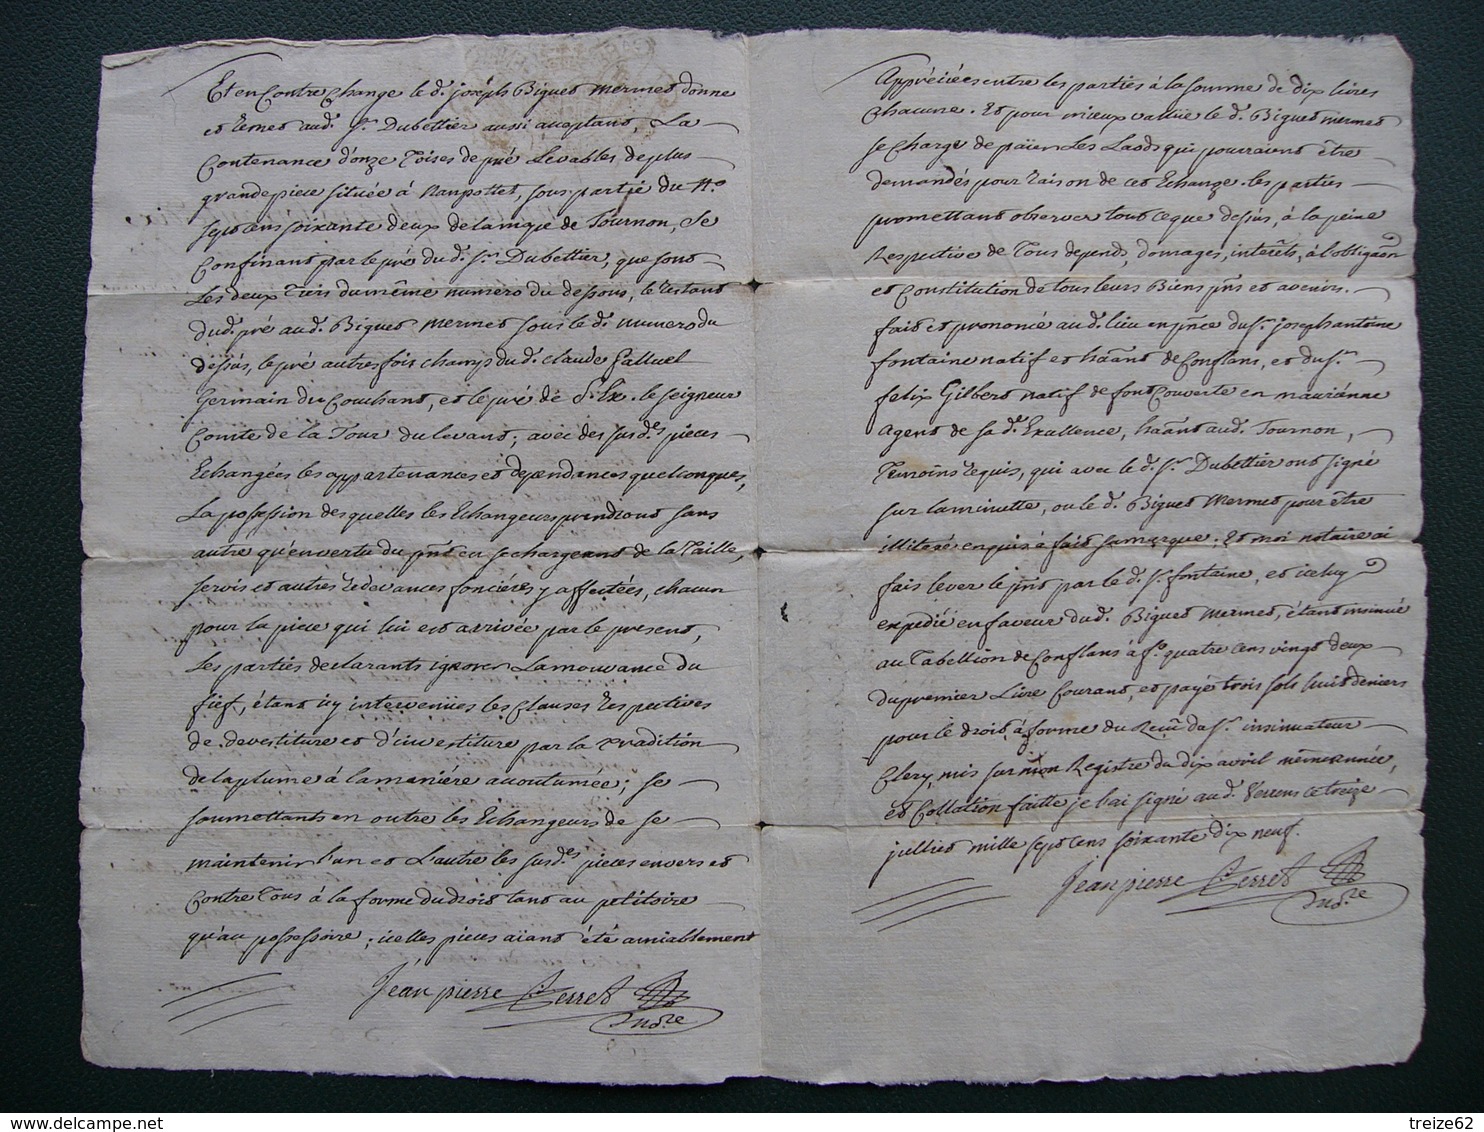 Et en Contre Change le d.t joseph Biguet mermet donne
et Remet aud.t S.r Dubettier aussi acceptant, La
Contenance d'onze Toises de pré Levables de plus
grande piece située à Rangottet, sous partie du N.o
sept cens soixante deux de la mape de Tournon, se
Confinant par le pré du d.t S.r Dubettier, que sont
Les deux Tiers du même numero du dessous, le restant
dud.t pré aud.t Biguet mermet sous le d.t numero du
dessus, le pré autres fois champ du d.t claude Falluel
Germain du Couchant, et le pré de S. Ex. le seigneur
Comte de la Tour du levant; avec des susd.es pieces
Echangées les appartenances et dependances quelconques,
La possession des quelles les Echangeurs prendront sans
autre qu'en vertu du pñt en se chargeant de la Taille,
servis et autres redevances fonciéres y affectées, chacun
pour la piece qui lui est arrivée par le present,
Les parties declarants ignorer La mouvance du
fief, étant icy intervenües les Clauses respectives
de devestiture et d'investiture par la tradition
de la plume à la maniére accoutumée; se
soumettants en outre les Echangeurs de se
maintenir l'un et L'autre les susd.es pieces envers et
Contre Tous à la forme du droit tant au petitoire
qu'au possessoire; icelles pieces aïant été amiablement
Jean pierre Perret
Not.re
Appréciées entre les parties à la somme de dix livres
Chacune. Et pour mieux vallüe le d.t Biguet mermet
se charge de païer Les Laods qui pourraient être
demandés pour raison de cet Echange. les parties
promettant observer tout ce que dessus, à la peine
Respective de Tous depends, domages, interêts, à l'obligãon
et Constitution de tous leurs Biens pñts et avenirs.
fait et prononcé aud.t lieu en pñce du S.r joseph antoine
fontaine natif et hãant de Conflans, et du S.r
felix Gilbert natif de font Couverte en mauriánne
agent de sa d.te Excellence, hãant aud.t Tournon,
Temoins requis, qui avec le d.t S.r Dubettier ont signé
sur la minutte, ou le d.t Biguet mermet pour être
illiteré enquis à fait sa marque. Et moi notaire ai
fais lever le pñt par le d.t S.r fontaine, et iceluy
expedié en faveur dud.t Biguet mermet, étant insinué
au Tabellion de Conflans à f.o quatre cens vingt deux
du premier Livre Courant, et payé trois sols huit deniers
pour le droit, à forme du Recû du S.r insinuateur
Clery, mis sur mon Registre du dix avril même année,
et Collation faitte je l'ai signé aud.t Verrens ce treize
jullet mille sept cens soixante dix neuf.
Jean pierre Perret
Not.re
treize62